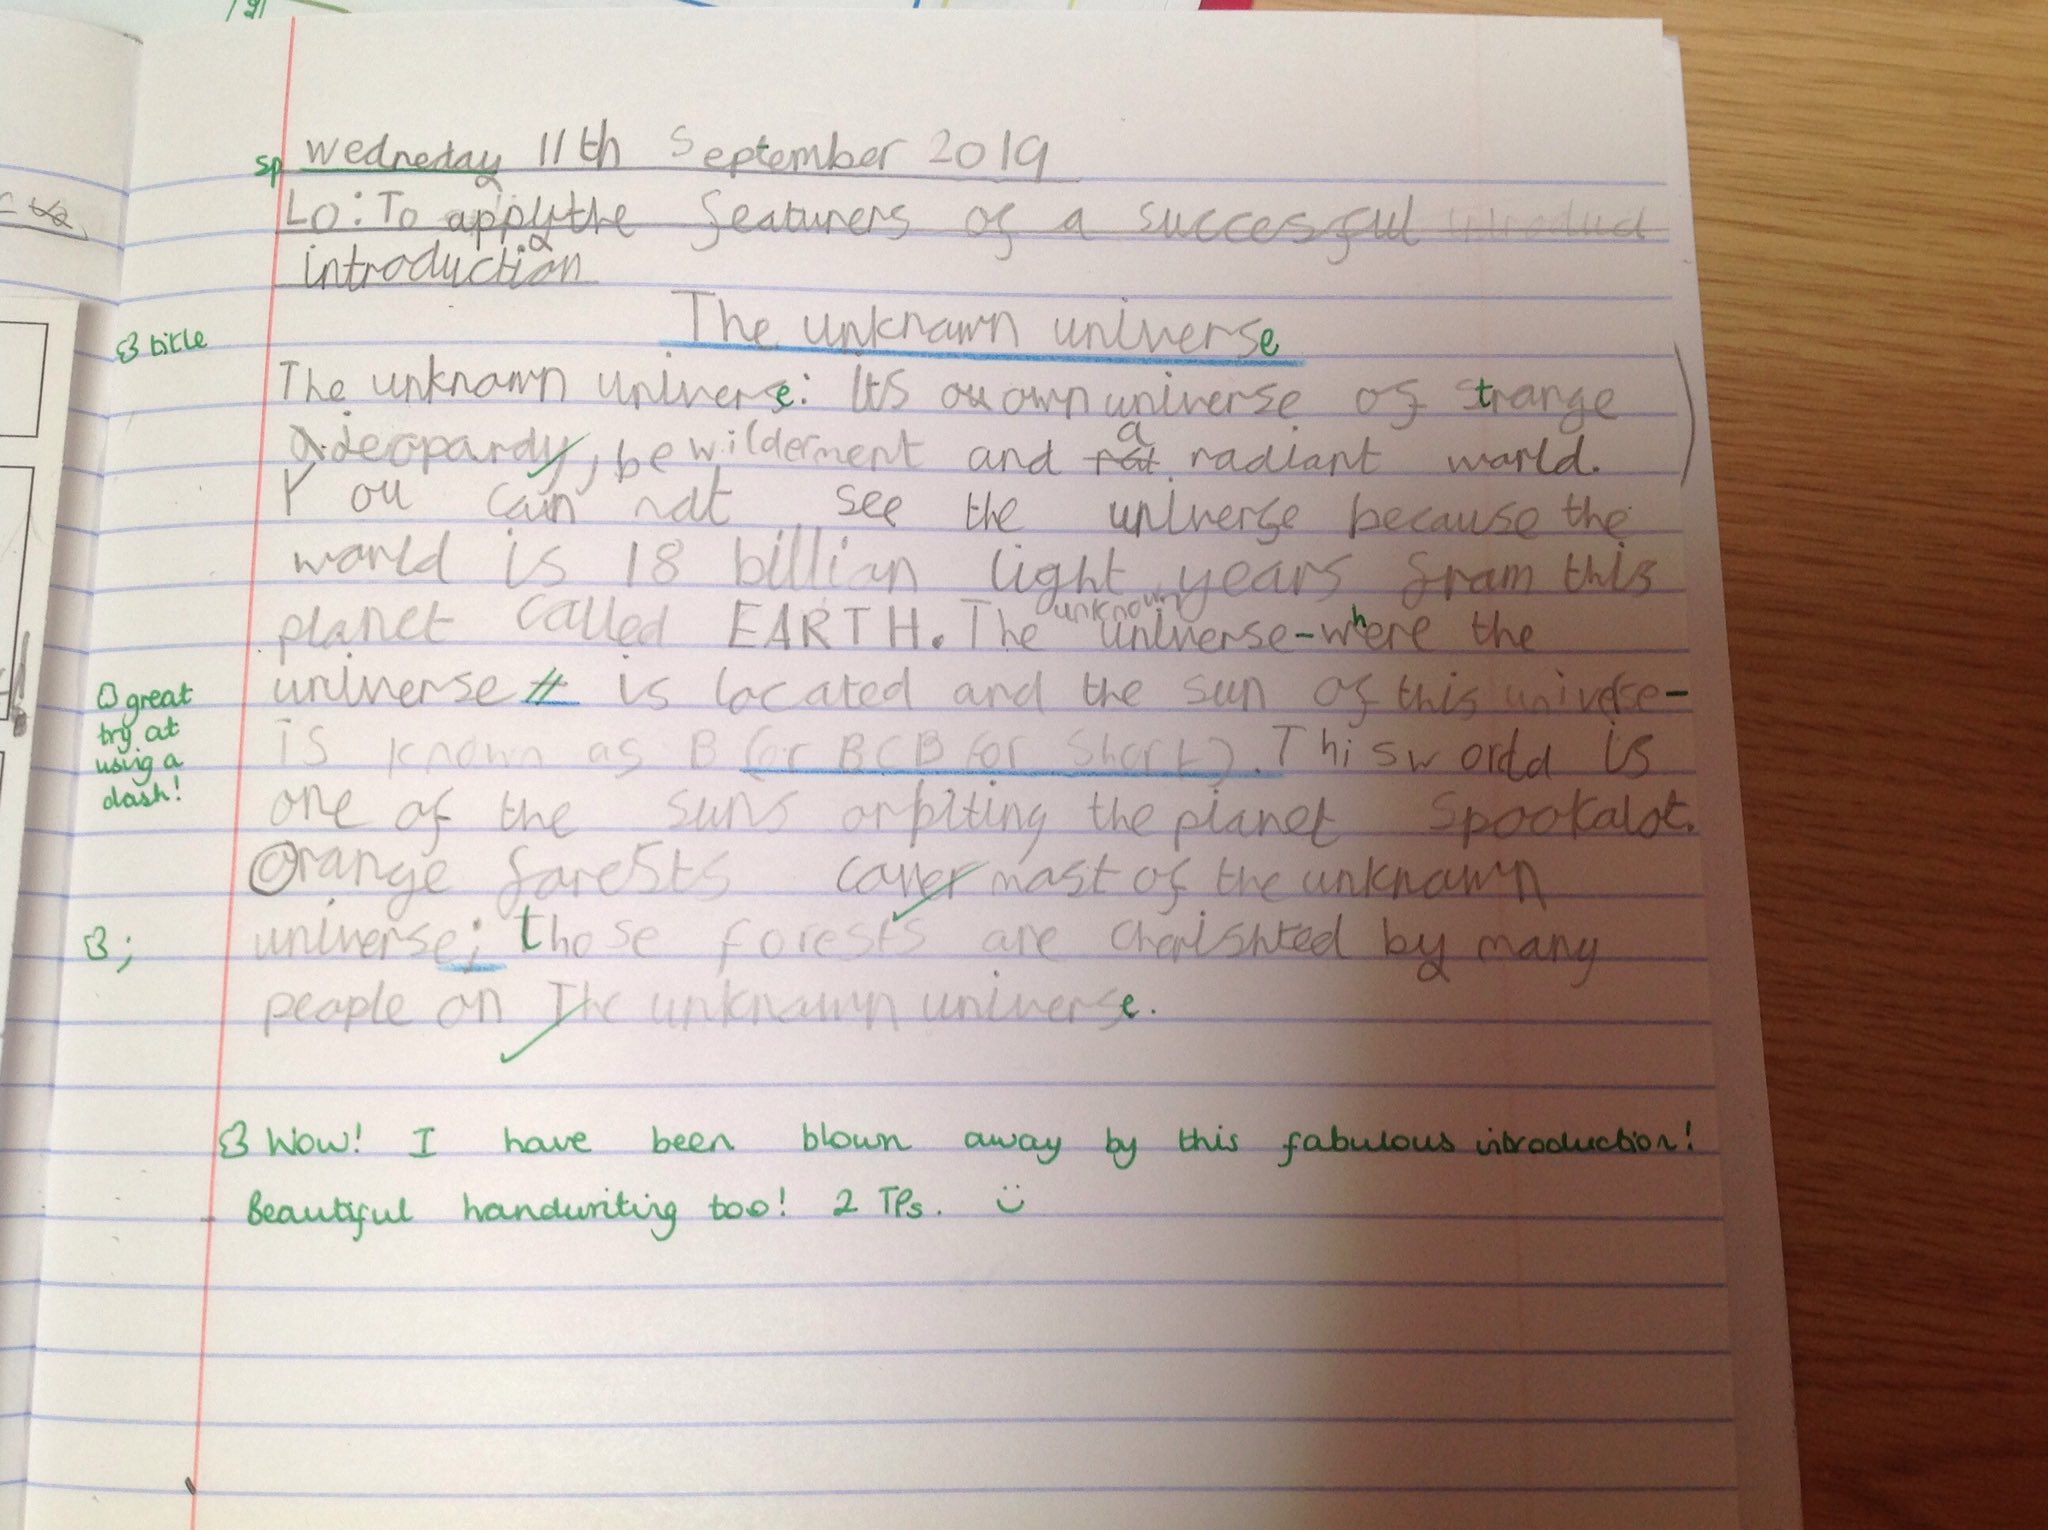 sp wedneday 11th September 2019
Lo: To apply the featurers of a succesful introduct
introduction
The unknown universe
title
The unknown universe: Its ou own universe of strange
a jeopardy, bewilderment and rat a radiant world.
You can not see the universe because the
world is 18 billion light years from this
planet called EARTH. The unknown universe - where the
universe is located and the sun of this universe -
great
try at
using a
dash!
is known as B (or BCB for short). This world is
one of the suns orbiting the planet Spookalot.
Orange forests cover most of the unknown
; universe; those forests are cherishted by many
people on The unknown universe.
Wow! I have been blown away by this fabulous introduction!
Beautiful handwriting too! 2 TPs.